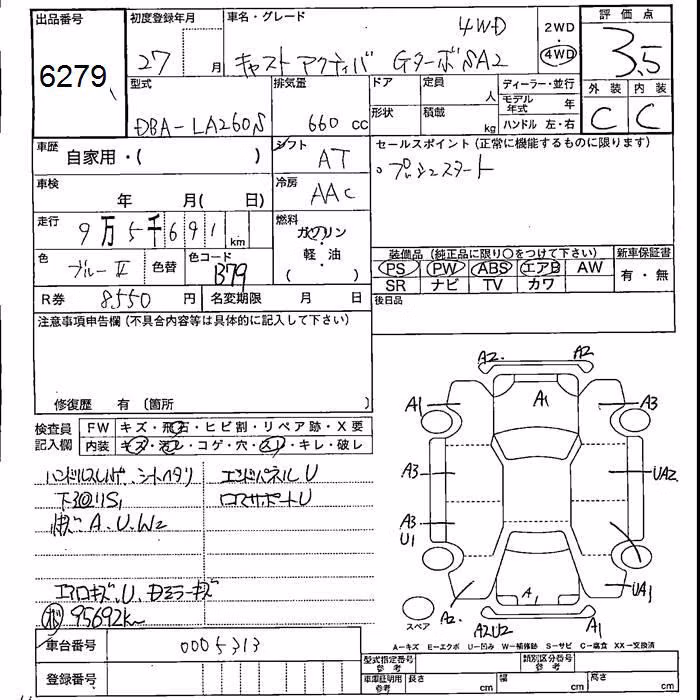 出品番号 初度登録年月 車名・グレード 4WD 2WD 評価点
6279 27 月 キャスト アクティバ GターボSA2 4WD 3.5
型式 排気量 ドア 定員 人 ディーラー・並行 外装 内装
DBA-LA260S 660 cc 形状 積載 kg モデル年式 年 C C
ハンドル 左・右
車歴 自家用・( ) シフト AT セールスポイント (正常に機能するものに限ります)
車検 年 月( 日) 冷房 AAC 。プッシュスタート
走行 9万5千691 km 燃料 ガソリン・軽・油 ( )
色 ブルーII 色替 色コード B79 装備品 (純正品に限り〇をつけて下さい) 新車保証書
PS PW ABS エアB AW 有・無
SR ナビ TV カワ
R券 8550 円 名変期限 月 日 後日品
注意事項申告欄 (不具合内容等は具体的に記入して下さい)
修復歴 有 (箇所 )
検査員記入欄 FW キズ・飛石・ヒビ割・リペア跡・X要
内装 キズ・汚レ・コゲ・穴・スレ・キレ・破レ
ハンドルスレ シートヘタリ エンドパネルU
下回りS1 コアサポートU
A.U.W2
エアロキズ.U.ドアミラーキズ
95692km
車台番号 0005313
登録番号
A2 A2
A1 A1 A3
A3 UA2
A3
U1
A2 A1 UA1
スペア A2U2 A1
A-キズ E-エクボ U-凹み W-補修跡 S-サビ C-腐食 XX-交換済
型式指定番号 参考 類別区分番号 参考
車庫証明用 参考 長さ cm 幅 cm 高さ cm